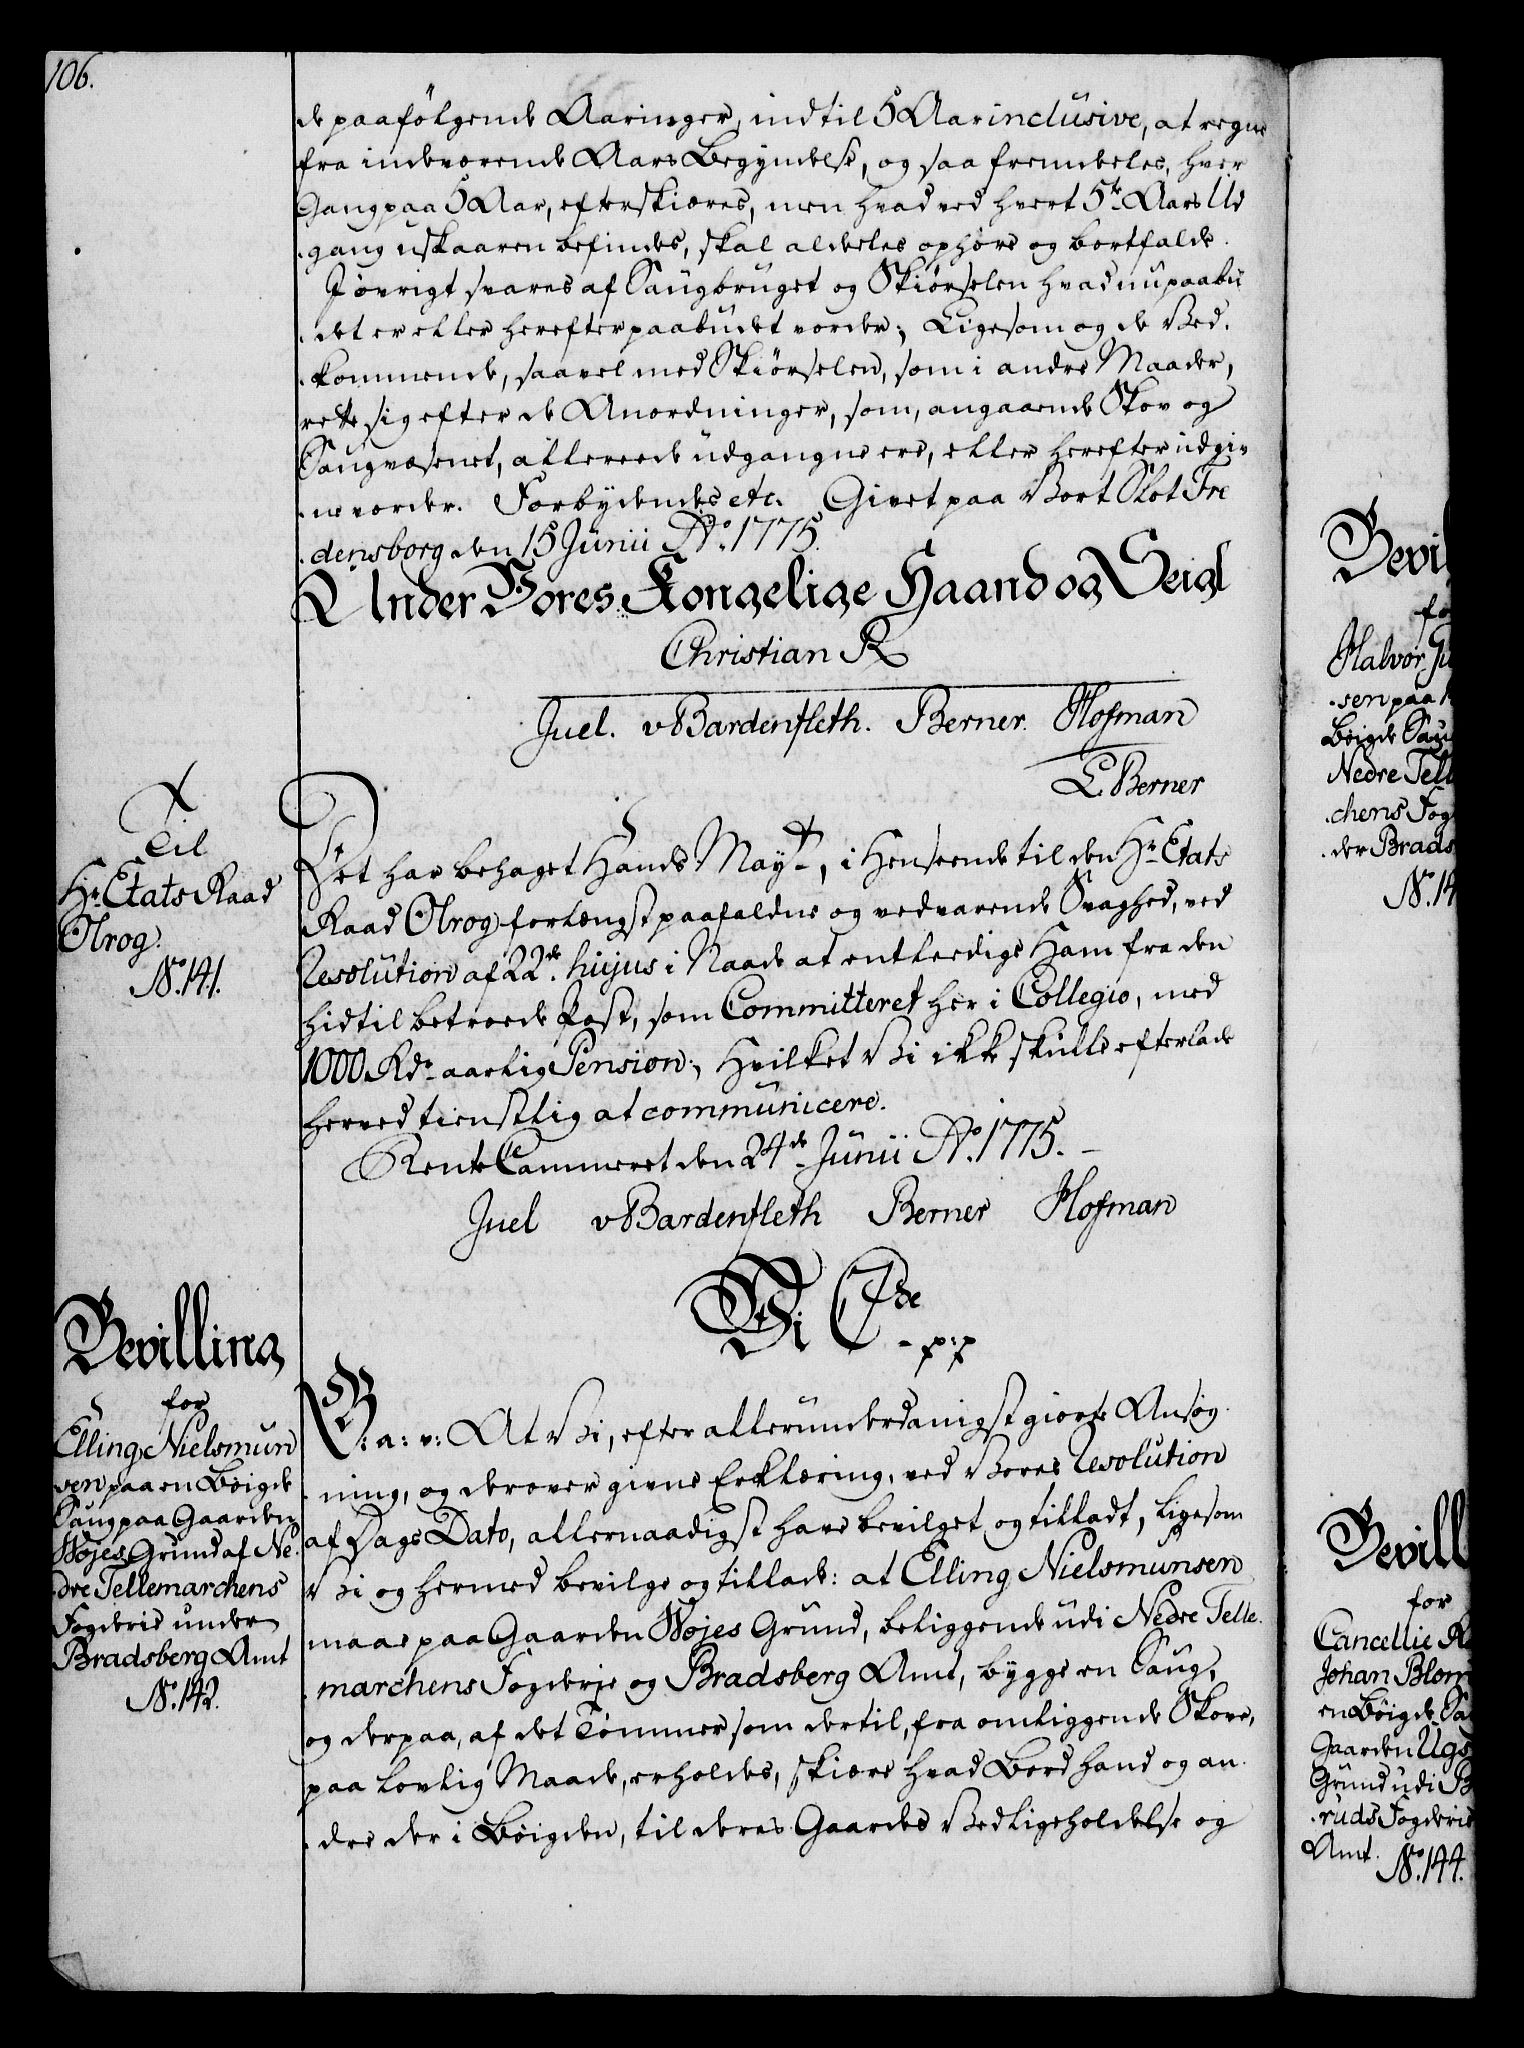 106.
de paafølgende Aaringer, indtil 5 Aar inclusive, at regne
fra indeværende Aars Begyndelse, og saa fremdeles, hver
Gang paa 5 Aar, efterskiæres, men hvad ved hvert 5te Aars Ud
gang uskaaren befindes, skal aldeles ophøre og bortfalde.
I øvrigt svares af Saugbruget og Skiørselen hvad nu paabü
det er eller herefter paabudet vorder; Ligesom og de Ved.
kommende, saavel med Skiørselen, som i andre Maader,
rette sig efter de Anordninger, som, angaaende Skov og
Saugvæsenet, allereede udgangne ere, eller herefter udgi-
ne vorder. Forbydendes etc. Givet paa Vort Slot Fre
densborg den 15 Junii Ao. 1775.
Under Vores Kongelige Haand og Seigl
Christian R
Juel. v Bardenfleth. Berner. Hofman
L. Berner
Til
Hr. Etats Raad
Olrog.
No. 141.
Det har behaget Hands Mayt, i Henseende til den Hr. Etats
Raad Olrog forlængst paafaldne og vedvarende Svaghed, ved
Resolution af 22de hujus i Naade at entledige Ham fra den
hidtil betroede Post, som Committeret her i Collegio, med
1000 Rdr. aarlig Pension; Hvilket Vi ikke skulle efterlade
herved tienstlig at communicere.
Rente Cammeret den 24de Junii Ao. 1775. -
Juel v Bardenfleth Berner Hofman
Vi C 7de
- p: p
Bevilling
for
Elling Nielsmun
sen paa en Bøigde
Saug paa Gaarden
Wojes Grund af Ne.
dre Tellemarchens
Fogderie under
Bradsberg Amt
No. 142.
G: a: v: At Vi, efter allerunderdanigst giorte Ansøg
ning, og derover givne Erklæring, ved Vores Resolution
af Dags Dato, allernaadigst have bevilget og tilladt, ligesom
Vi og hermed bevilge og tillade: at Elling Nielsmunsen
maae paa Gaarden Wojes Grund, beliggende udi Nedre Telle.
marchens Fogderje og Bradsberg Amt, bygge en Saug,
og derpaa, af det Tømmer som dertil, fra omliggende Skove,
paa lovlig Maade, erholdes, skiære hvad Bord hand og an
dre der i Bøigden, til deres Gaardes Vedligeholdelse og
Bevil
fo
Halvor Ju
sen paa
Bøigde Sau
Nedre Tell
chens Fog
der Brads
No. 14
Bevill
for
Cancellie R
Johan Blom
en Bøigde Sa
Gaarden Ugs
Grund udi B
ruds Fogderie
Amt.
No. 144.